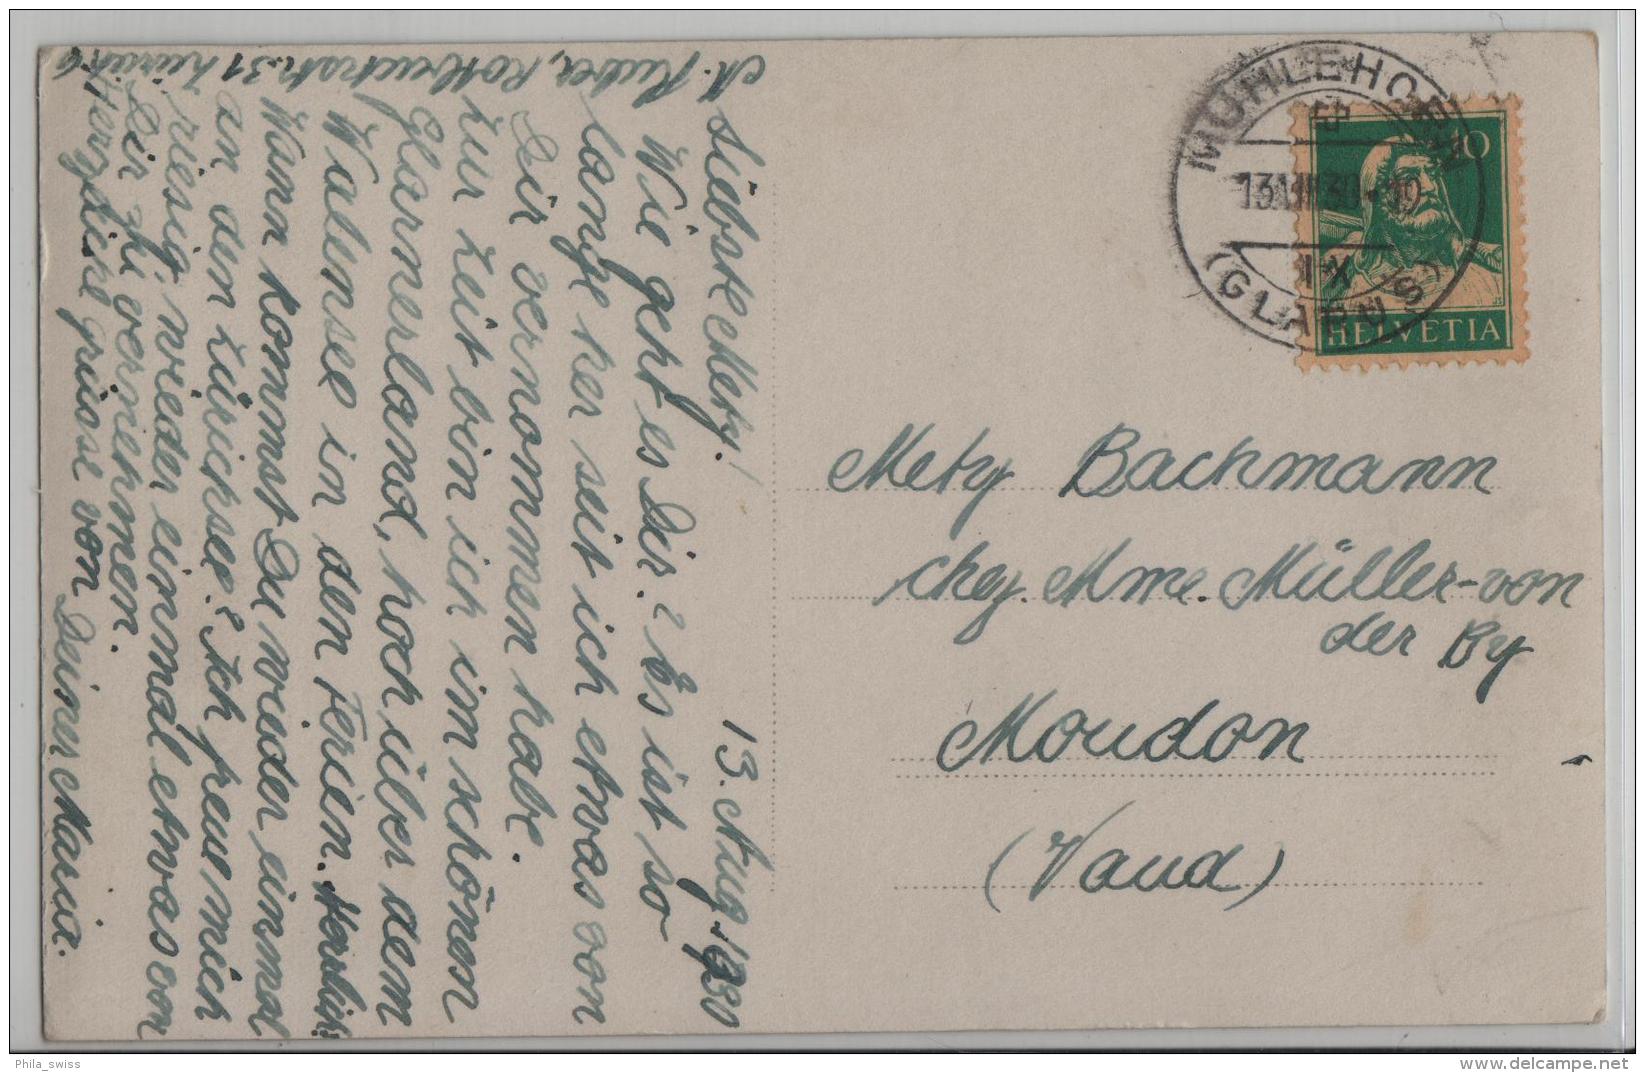 13. Aug. 1930
Liebste Mety!
Wie geht es Dir? Es ist so
lange her seit ich etwas von
Dir vernommen habe.
Zur Zeit bin ich im schönen
Glarnerland, hoch über dem
Walensee in den Ferien. Herrlich!
Wann kommst Du wieder einmal
an den Zürichsee? Ich freue mich
riesig, wieder einmal etwas von
Dir zu vernehmen.
Herzliche Grüsse von
Deiner Maria.
Zürich 6
MÜHLEHORN
13.VIII.30-19
(GLARUS)
10
HELVETIA
Mety Bachmann
chez. Mme. Müller-von
der By
Moudon
(Vaud)
Phila_swiss
www.delcampe.net